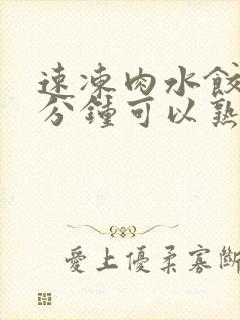 速凍肉水餃
分鐘可以熟
愛上優柔寡斷